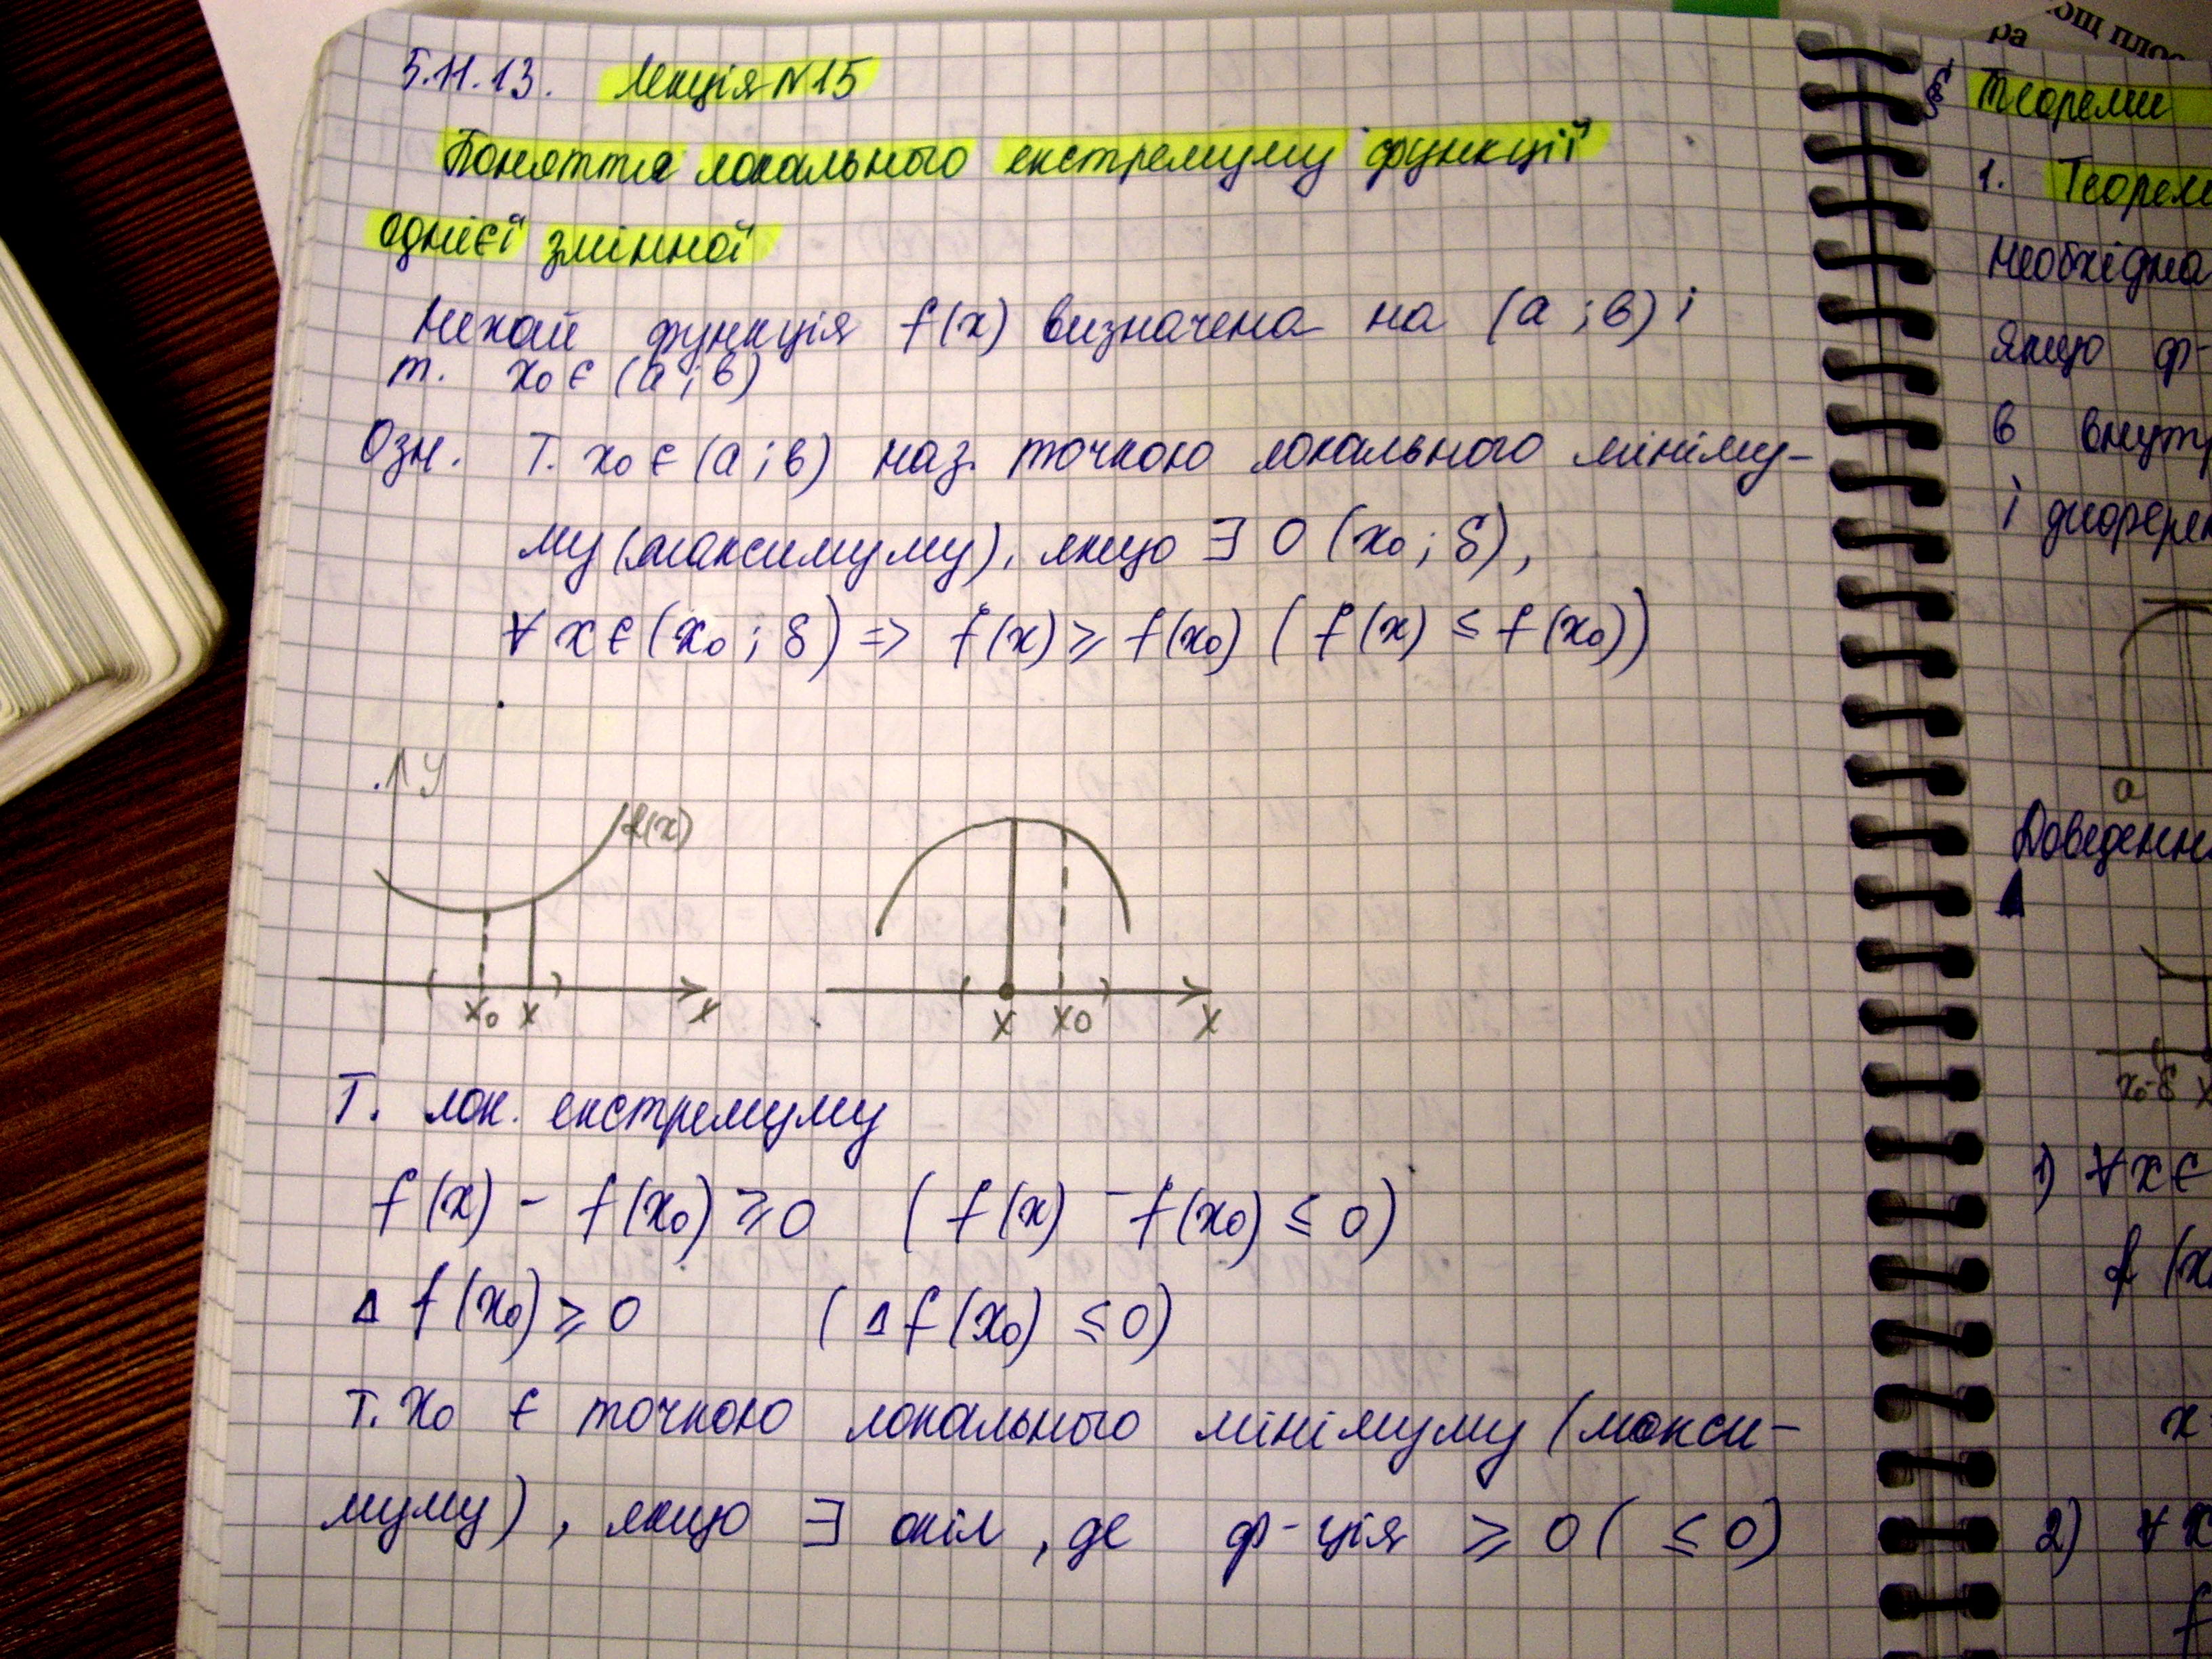 5.11.13. Лекція N15
Поняття локального екстремуму функції
однієї змінної
Нехай функція f(x) визначена на (a ; в) і
т. x₀ є (a ; в)
Озн. Т. x₀ є (a ; в) наз. точкою локального мініму-
му (максимуму), якщо ∃ O (x₀ ; δ),
∀ x є (x₀ ; δ) => f(x) ≥ f(x₀) ( f(x) ≤ f(x₀))
y
f(x)
x₀ x x
x x₀ x
Т. лок. екстремуму
f(x) - f(x₀) ≥ 0 ( f(x) - f(x₀) ≤ 0)
Δ f(x₀) ≥ 0 ( Δ f(x₀) ≤ 0)
т. x₀ є точкою локального мінімуму (макси-
муму) , якщо ∃ окіл , де ф-ція ≥ 0 ( ≤ 0)
ра
ющ плос
§ Теореми
1. Теорем
Необхідна
Якщо ф-
в внутр
і диферен
a
Доведенн
x₀-δ x
1) ∀ x є
f (x
x
2) ∀ x
f